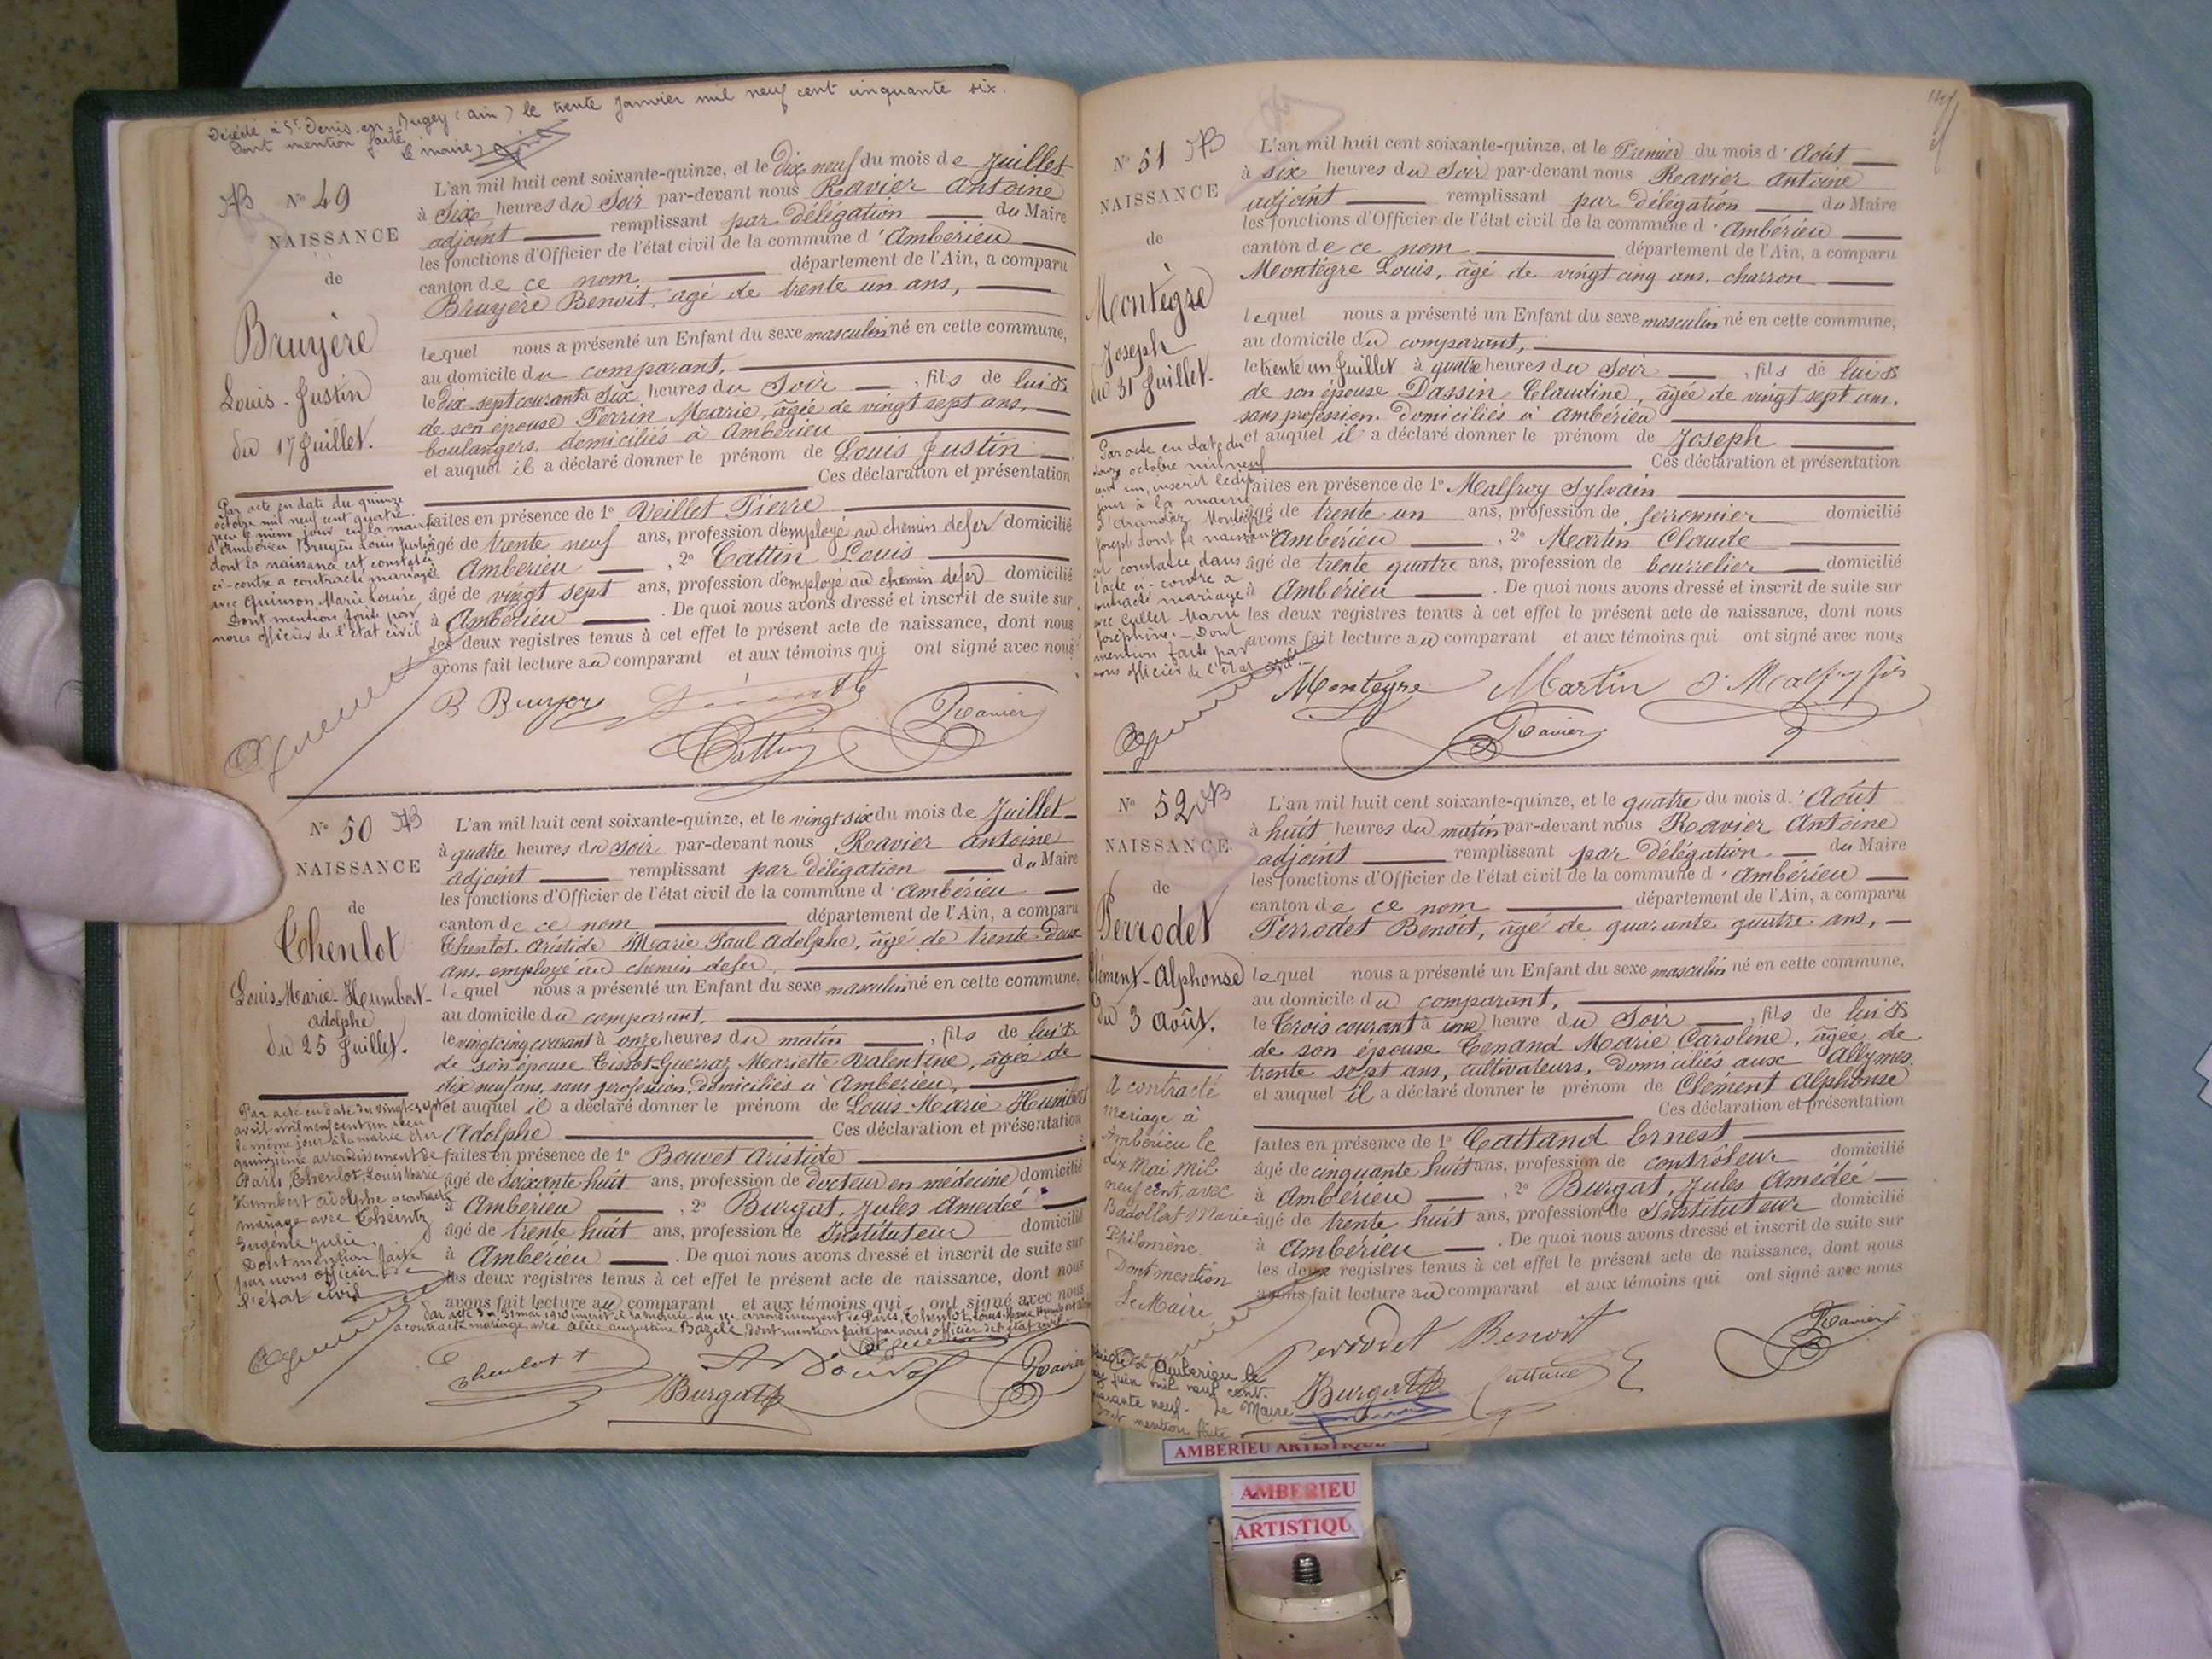 Décédé à St Denis en Bugey (Ain) le trente Janvier mil neuf cent cinquante six.
Dont mention faite
le maire,
AB N° 49
NAISSANCE
de
Bruyère
Louis-Justin
du 17 Juillet.
Par acte en date du quinze
octobre mil neuf cent quatre
reçu le même jour en la mairie
d'Ambérieu Bruyère Louis Justin
dont la naissance est constatée
ci-contre a contracté mariage
avec Guinson Marie Louise
Dont mention faite par
nous officier de l'état civil
L'an mil huit cent soixante-quinze, et le Dix neuf du mois de Juillet
à Six heures du Soir par-devant nous Ravier Antoine
adjoint remplissant par délégation du Maire
les fonctions d'Officier de l'état civil de la commune d'Ambérieu
canton de ce nom département de l'Ain, a comparu
Bruyère Benoit, âgé de trente un ans,
lequel nous a présenté un Enfant du sexe masculin né en cette commune,
au domicile du comparant,
le dix-sept courant à Six heures du Soir, fils de lui &
de son épouse Perrin Marie, âgée de vingt sept ans,
boulangers, domiciliés à Ambérieu
et auquel il a déclaré donner le prénom de Louis Justin
Ces déclaration et présentation
faites en présence de 1° Veillet Pierre
âgé de trente neuf ans, profession d'employé au chemin de fer domicilié
à Ambérieu, 2° Cattin Louis
âgé de vingt sept ans, profession d'employé au chemin de fer domicilié
à Ambérieu. De quoi nous avons dressé et inscrit de suite sur
les deux registres tenus à cet effet le présent acte de naissance, dont nous
avons fait lecture au comparant et aux témoins qui ont signé avec nous
B Bruyère
Cattin Ravier
N° 50 AB
NAISSANCE
de
Chenlot
Louis-Marie-Humbert-
Adolphe
du 25 Juillet.
Par acte en date du vingt-sept
avril mil neuf cent un reçu
le même jour à la mairie du
quinzième arrondissement de
Paris, Chenlot, Louis Marie
Humbert Adolphe a contracté
mariage avec Cheintz
Eugénie Julie.
Dont mention faite
par nous officier de
l'état civil
L'an mil huit cent soixante-quinze, et le vingt-six du mois de Juillet
à quatre heures du Soir par-devant nous Ravier Antoine
adjoint remplissant par délégation du Maire
les fonctions d'Officier de l'état civil de la commune d'Ambérieu
canton de ce nom département de l'Ain, a comparu
Chenlot Aristide Marie Paul Adolphe, âgé de trente-deux
ans, employé au chemin de fer,
lequel nous a présenté un Enfant du sexe masculin né en cette commune,
au domicile du comparant,
le vingt cinq courant à onze heures du matin, fils de lui &
de son épouse Tissot-Guerraz Mariette Valentine, âgée de
dix neuf ans, sans profession, domiciliés à Ambérieu,
et auquel il a déclaré donner le prénom de Louis-Marie Humbert
Adolphe Ces déclaration et présentation
faites en présence de 1° Bouvet Aristide
âgé de Soixante huit ans, profession de docteur en médecine domicilié
à Ambérieu, 2° Burgat, Jules Amedeé
âgé de trente huit ans, profession de Instituteur domicilié
à Ambérieu. De quoi nous avons dressé et inscrit de suite sur
les deux registres tenus à cet effet le présent acte de naissance, dont nous
avons fait lecture au comparant et aux témoins qui ont signé avec nous
Par acte du 31 mai 1910 inscrit à la mairie du arrondissement de Paris, Chenlot, Louis-Marie Humbert
a contracté mariage avec Alice Augustine Bazile, dont mention faite par nous officier de l'état civil.
Chenlot A Bouvet Ravier
Burgat
N° 51 AB
NAISSANCE
de
Montègre
Joseph
du 31 Juillet.
Par acte en date du
douze octobre mil neuf
cent un, inscrit ledit
jour à la mairie
d'Arandas Montègre
Joseph dont la naissance
est constatée dans
l'acte ci-contre a
contracté mariage
avec Cullet Marie
Joséphine. - Dont
mention faite par
nous officier de l'état civil.
L'an mil huit cent soixante-quinze, et le Premier du mois d'Août
à six heures du Soir par-devant nous Ravier Antoine
adjoint remplissant par délégation du Maire
les fonctions d'Officier de l'état civil de la commune d'Ambérieu
canton de ce nom département de l'Ain, a comparu
Montègre Louis, âgé de vingt cinq ans, charron
lequel nous a présenté un Enfant du sexe masculin né en cette commune,
au domicile du comparant,
le trente un Juillet à quatre heures du Soir, fils de lui &
de son épouse Dassin Claudine, âgée de vingt sept ans,
sans profession, domiciliés à Ambérieu
et auquel il a déclaré donner le prénom de Joseph
Ces déclaration et présentation
faites en présence de 1° Malfroy Sylvain
âgé de trente un ans, profession de ferronnier domicilié
à Ambérieu, 2° Martin Claude
âgé de trente quatre ans, profession de bourrelier domicilié
à Ambérieu. De quoi nous avons dressé et inscrit de suite sur
les deux registres tenus à cet effet le présent acte de naissance, dont nous
avons fait lecture au comparant et aux témoins qui ont signé avec nous
Montègre Martin S Malfroy fils
Ravier
N° 52 AB
NAISSANCE
de
Perrodet
Clément-Alphonse
du 3 Août.
A contracté
mariage à
Ambérieu le
dix Mai mil
neuf cent, avec
Badollet Marie
Philomène.
Dont mention
Le Maire
L'an mil huit cent soixante-quinze, et le quatre du mois d'Août
à huit heures du matin par-devant nous Ravier Antoine
adjoint remplissant par délégation du Maire
les fonctions d'Officier de l'état civil de la commune d'Ambérieu
canton de ce nom département de l'Ain, a comparu
Perrodet Benoît, âgé de quarante quatre ans,
lequel nous a présenté un Enfant du sexe masculin né en cette commune,
au domicile du comparant,
le trois courant à une heure du Soir, fils de lui &
de son épouse Tenand Marie Caroline, âgée de
trente sept ans, cultivateurs, domiciliés aux Allymes
et auquel il a déclaré donner le prénom de Clément Alphonse
Ces déclaration et présentation
faites en présence de 1° Cattand Ernest
âgé de cinquante huit ans, profession de contrôleur domicilié
à Ambérieu, 2° Burgat, Jules Amédée
âgé de trente huit ans, profession de Instituteur domicilié
à Ambérieu. De quoi nous avons dressé et inscrit de suite sur
les deux registres tenus à cet effet le présent acte de naissance, dont nous
avons fait lecture au comparant et aux témoins qui ont signé avec nous
Perrodet Benoit Ravier
Burgat Cattand
Décédé à Ambérieu le
juin mil neuf cent
quarante neuf. Le Maire
Dont mention faite
AMBERIEU ARTISTIQUE
AMBERIEU
ARTISTIQU